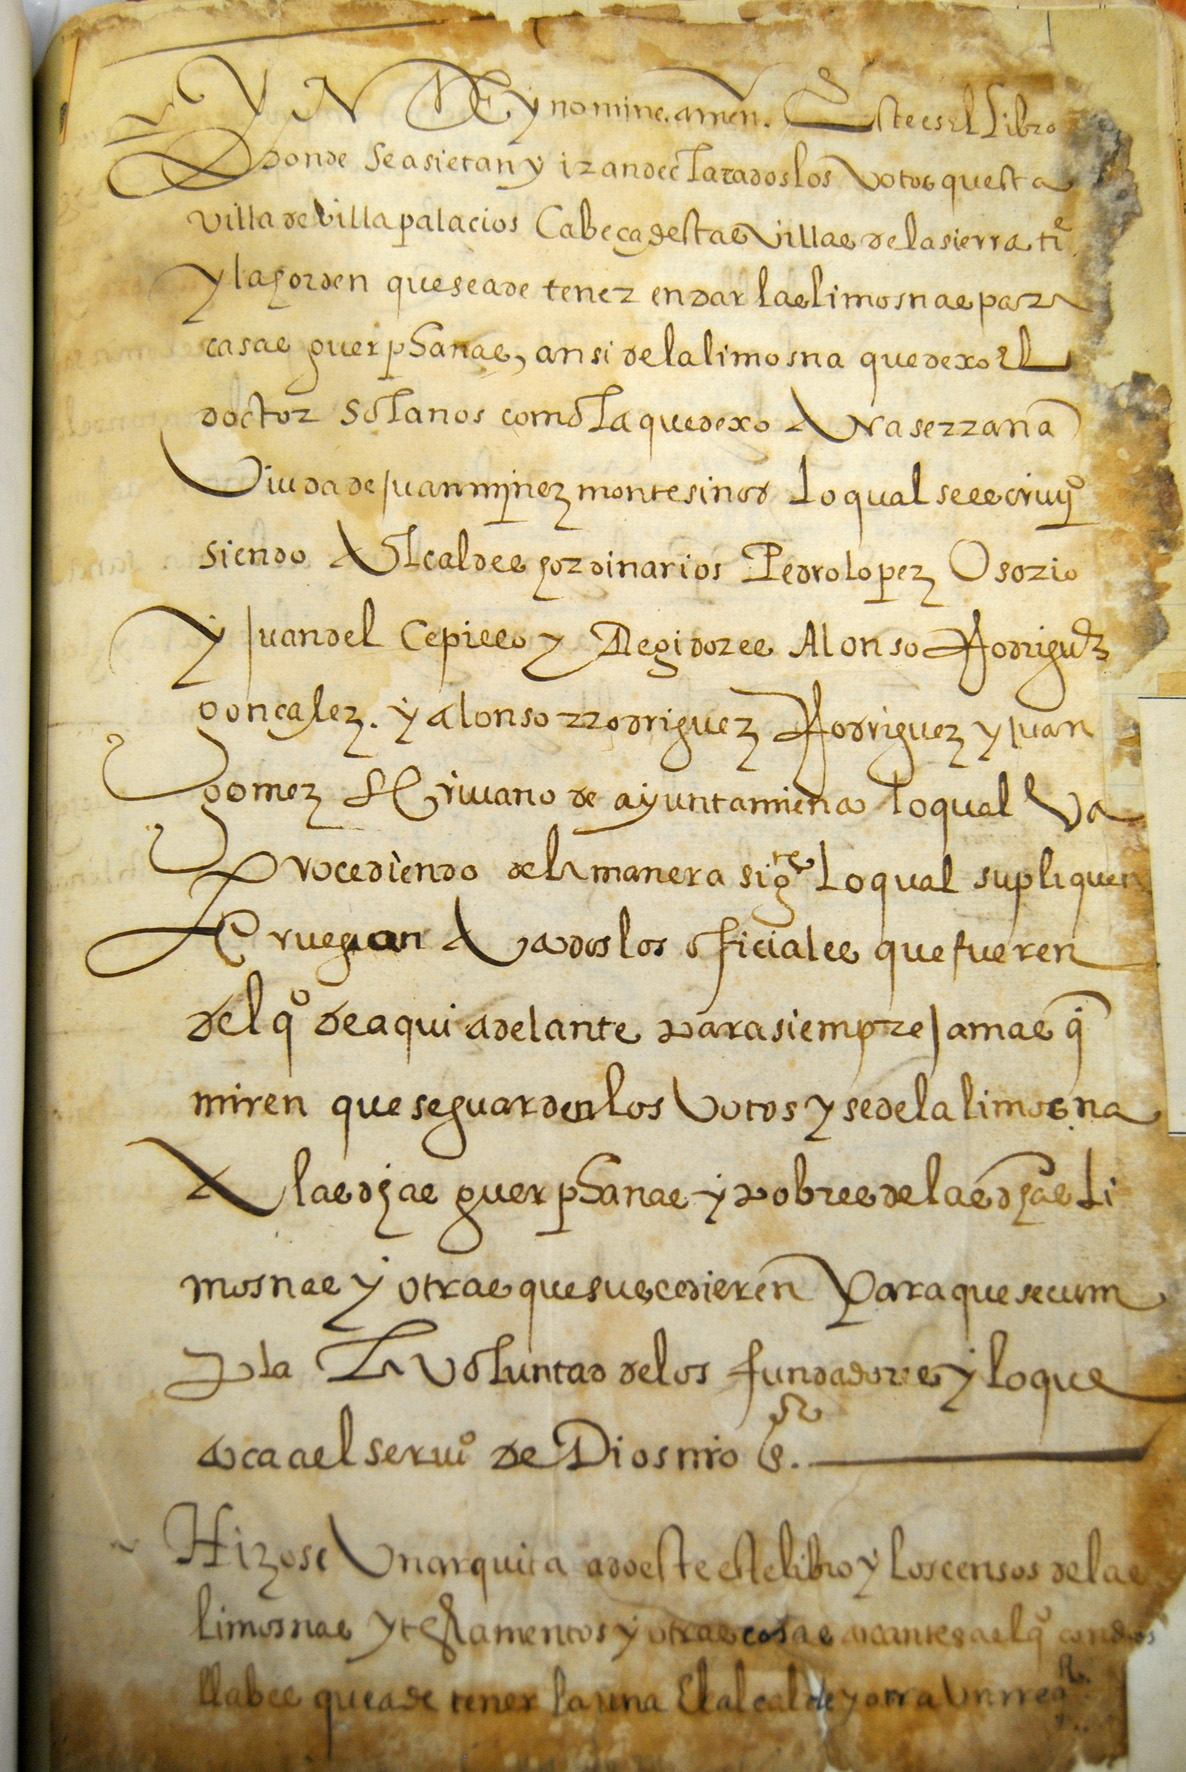 YN DEy nomine. amen. Este es el Libro
Donde se asietan y iran declarados los Votos que esta
villa de villapalacios Cabeça destas Villas de la sierra ti
y la horden que se a de tener en dar las limosnas para
casas guerphanas, ansi de la limosna que dexo El
doctor Solanos como la que dexo Ana serrana
Viuda de Juan mjnez montesinos lo qual se escriuyo
siendo Alcaldes hordinarios Pedro lopez Osorio
y Juan del Cepillo y Regidores Alonso Rodriguez
gonçalez. y alonso rrodriguez Rodriguez y Juan
gomez Escriuano de ayuntamiento lo qual Va
Procediendo de la manera sigte lo qual supliquen
E ruegan A todos los oficiales que fueren
del qo de aqui adelante para siempre Jamas q
miren que se guarden los Votos y se de la limosna
A las dhas guerphanas y pobres de las dhas Li
mosnas y otras que suscedieren Para que se cum
pla La Voluntad de los fundadores y lo que
toca al seruio de Dios nro sr.
Hizose Vn arquita a do este este libro y los censos de las
limosnas y testamentos y otras cosas tocantes a el qo con dos
llabes que a de tener la una El alcalde y otra Vn rregor